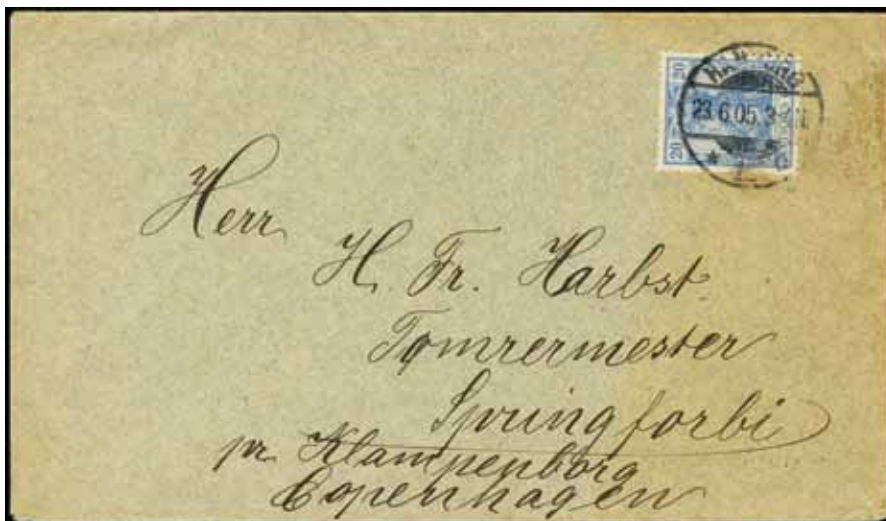 20 20
HAMBURG
23.6.05.3-4N
* 1.
Herr
H. Fr. Harbst.
Tømrermester
Springforbi
pr. Klampenborg
Copenhagen